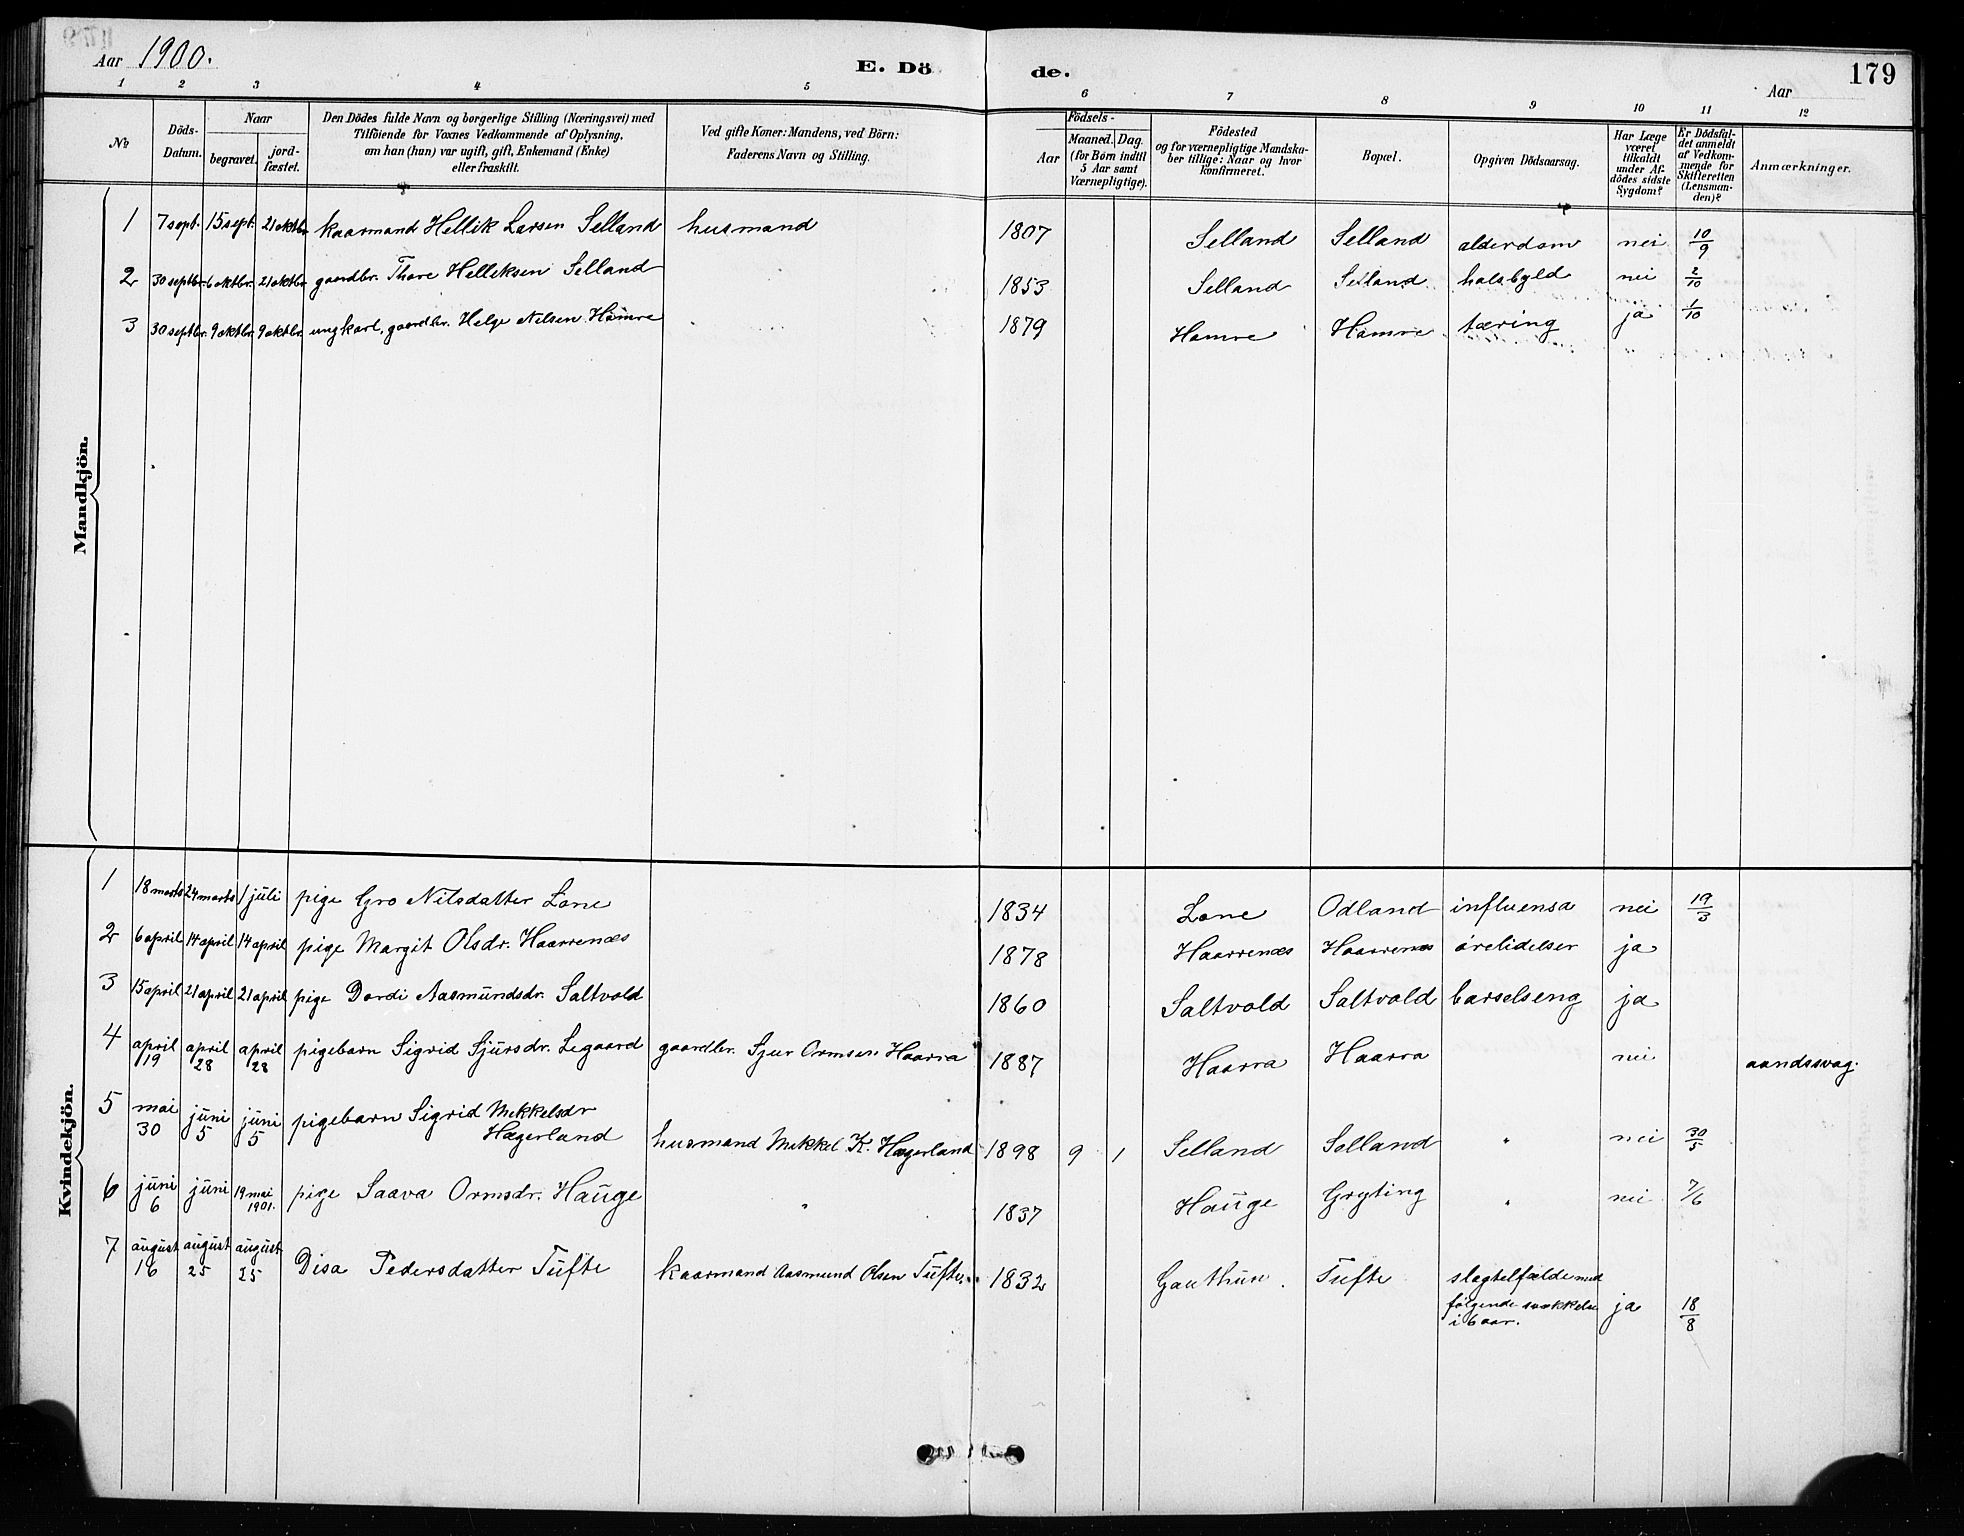 Aar 1900.
E. Dö de.
Aar
179
1 2 3 4 5 6 7 8 9 10 11 12
№
Döds-Datum.
Naar
begravet.
jord-fæstet.
Den Dödes fulde Navn og borgerlige Stilling (Næringsvei) med
Tilföiende for Voxnes Vedkommende af Oplysning,
om han (hun) var ugift, gift, Enkemand (Enke)
eller fraskilt.
Ved gifte Koner: Mandens, ved Börn:
Faderens Navn og Stilling.
Födsels-
Aar
Maaned. Dag.
(for Börn indtil
5 Aar samt
Værnepligtige).
Födested
og for værnepligtige Mandska-
ber tillige: Naar og hvor
konfirmeret.
Bopæl.
Opgiven Dödsaarsag.
Har Læge
været
tilkaldt
under Af-
dödes sidste
Sygdom?
Er Dödsfal-
det anmeldt
af Vedkom-
mende for
Skifteretten
(Lensman-
den)?
Anmærkninger.
Mandkjön.
1 7 sept. 15 sept. 21 oktbr. kaarmand Hellik Larsen Selland husmand 1807 Selland Selland alderdom nei 10/9
2 30 septbr. 6 oktbr. 21 oktbr. gaardbr. Thore Helleksen Selland 1853 Selland Selland halsbyld nei 2/10
3 30 septbr. 9 oktbr. 9 oktbr. ungkarl, gaardbr. Helge Nilsen Hamre 1879 Hamre Hamre tæring ja 1/10
Kvindekjön.
1 18 marts 24 marts 1 juli pige Gro Nilsdatter Lone 1834 Lone Odland influensa nei 19/3
2 6 april 14 april 14 april pige Margit Olsdr. Haarrenæs 1878 Haarrenæs Haarrenæs ørelidelser ja
3 15 april 21 april 21 april pige Dordi Aasmundsdr. Saltvold 1860 Saltvold Saltvold barselseng ja
4 april 19 april 28 april 28 pigebarn Sigrid Sjursdr. Legaard gaardbr. Sjur Ormsen Haarra 1887 Haarra Haarra nei aandssvag.
5 mai 30 juni 5 juni 5 pigebarn Sigrid Mekkelsdr
Hægerland husmand Mekkel K. Hægerland 1898 9 1 Selland Selland " nei 30/5
6 juni 6 juni 19 mai 1901. pige Saava Ormsdr. Hauge " 1837 Hauge Gryting " nei 7/6
7 august 16 august 25 august 25 Disa Pedersdatter Tufte kaarmand Aasmund Olsen Tufte 1832 Gauthun. Tufte slagtelfælde med
følgende svækkelse
i 6 aar. ja 18/8